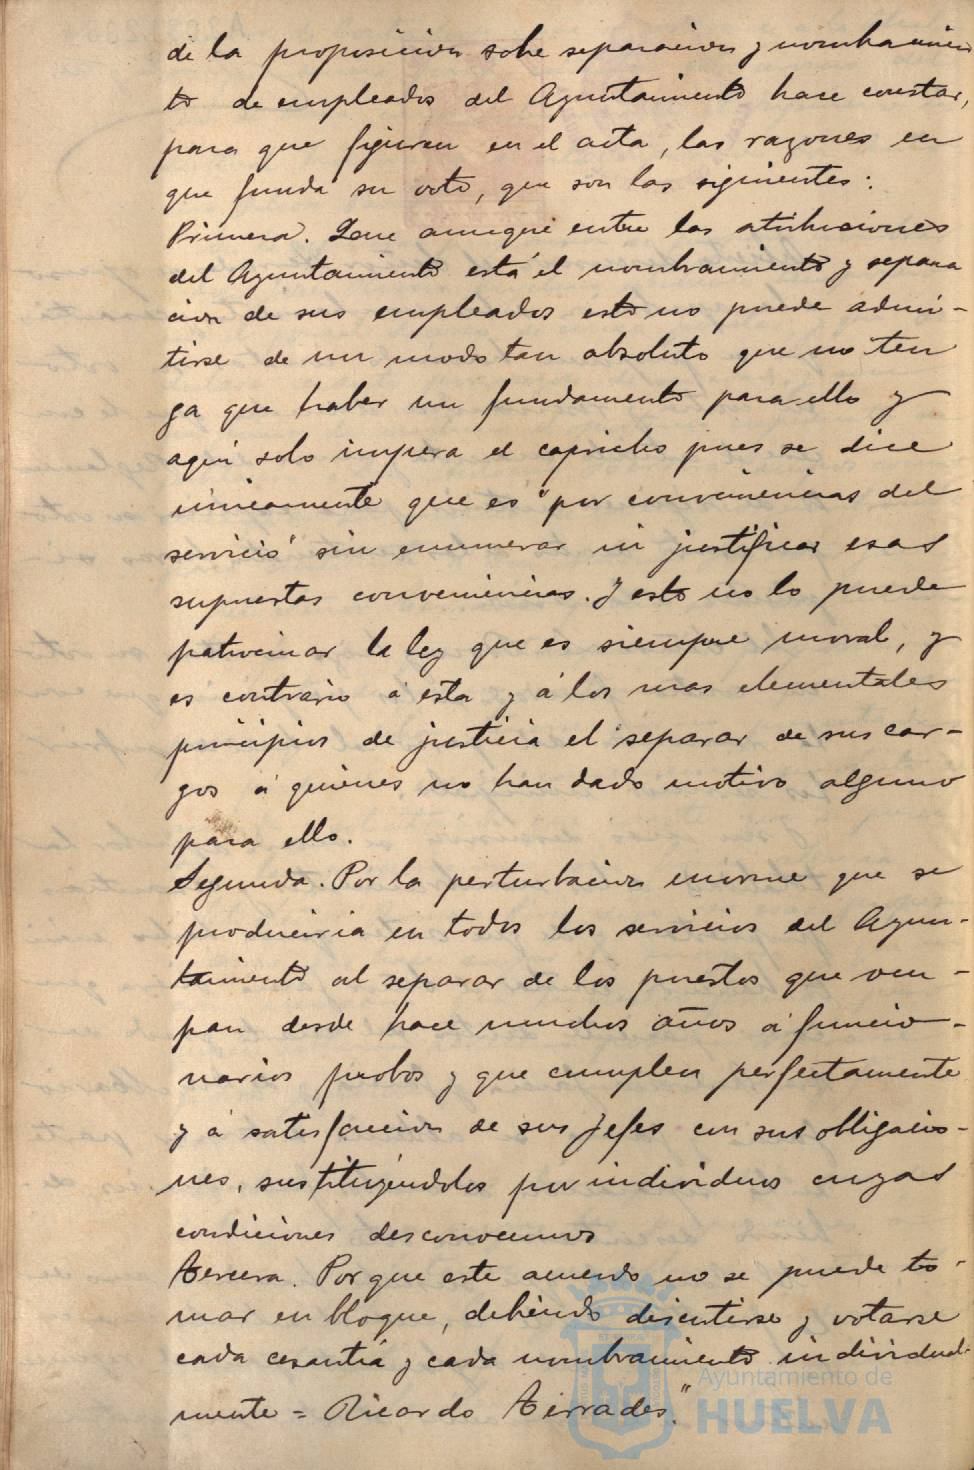 de la proposicion sobe separacion y nombramien
to de empleados del Ayuntamiento hace constar,
para que figuren en el acta, las razones en
que funda su voto, que son las siguientes:
Primera. Que aunque entre las atribuciones
del Ayuntamiento está el nombramiento y separa
cion de sus empleados esto no puede admi-
tirse de un modo tan absoluto que no ten
ga que haber un fundamento para ello y
aqui solo impera el capricho pues se dice
únicamente que es "por conveniencias del
servicio" sin enumerar ni justificar esas
supuestas conveniencias. Y esto no lo puede
patrocinar la ley que es siempre moral, y
es contrario á esta y á los mas elementales
principios de justicia el separar de sus car-
gos á quienes no han dado motivo alguno
para ello.
Segunda. Por la perturbacion enorme que se
produciria en todos los servicios del Ayun-
tamiento al separar de los puestos que ocu-
pan desde hace muchos años á funcio-
narios probos y que cumplen perfectamente
y á satisfaccion de sus jefes con sus obligacio-
nes, sustituyéndolos por individuos cuyas
condiciones desconocemos
Tercera. Porque este acuerdo no se puede to-
mar en bloque, debiendo discutirse y votarse
cada cesantia y cada nombramiento individual
mente = Ricardo Terrades."
Ayuntamiento de
HUELVA